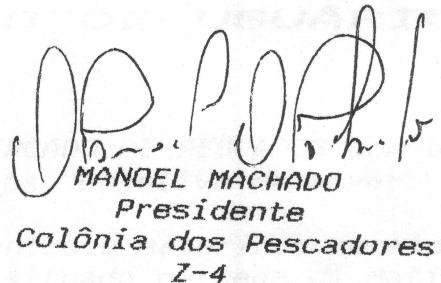 MANOEL MACHADO
Presidente
Colônia dos Pescadores
Z-4